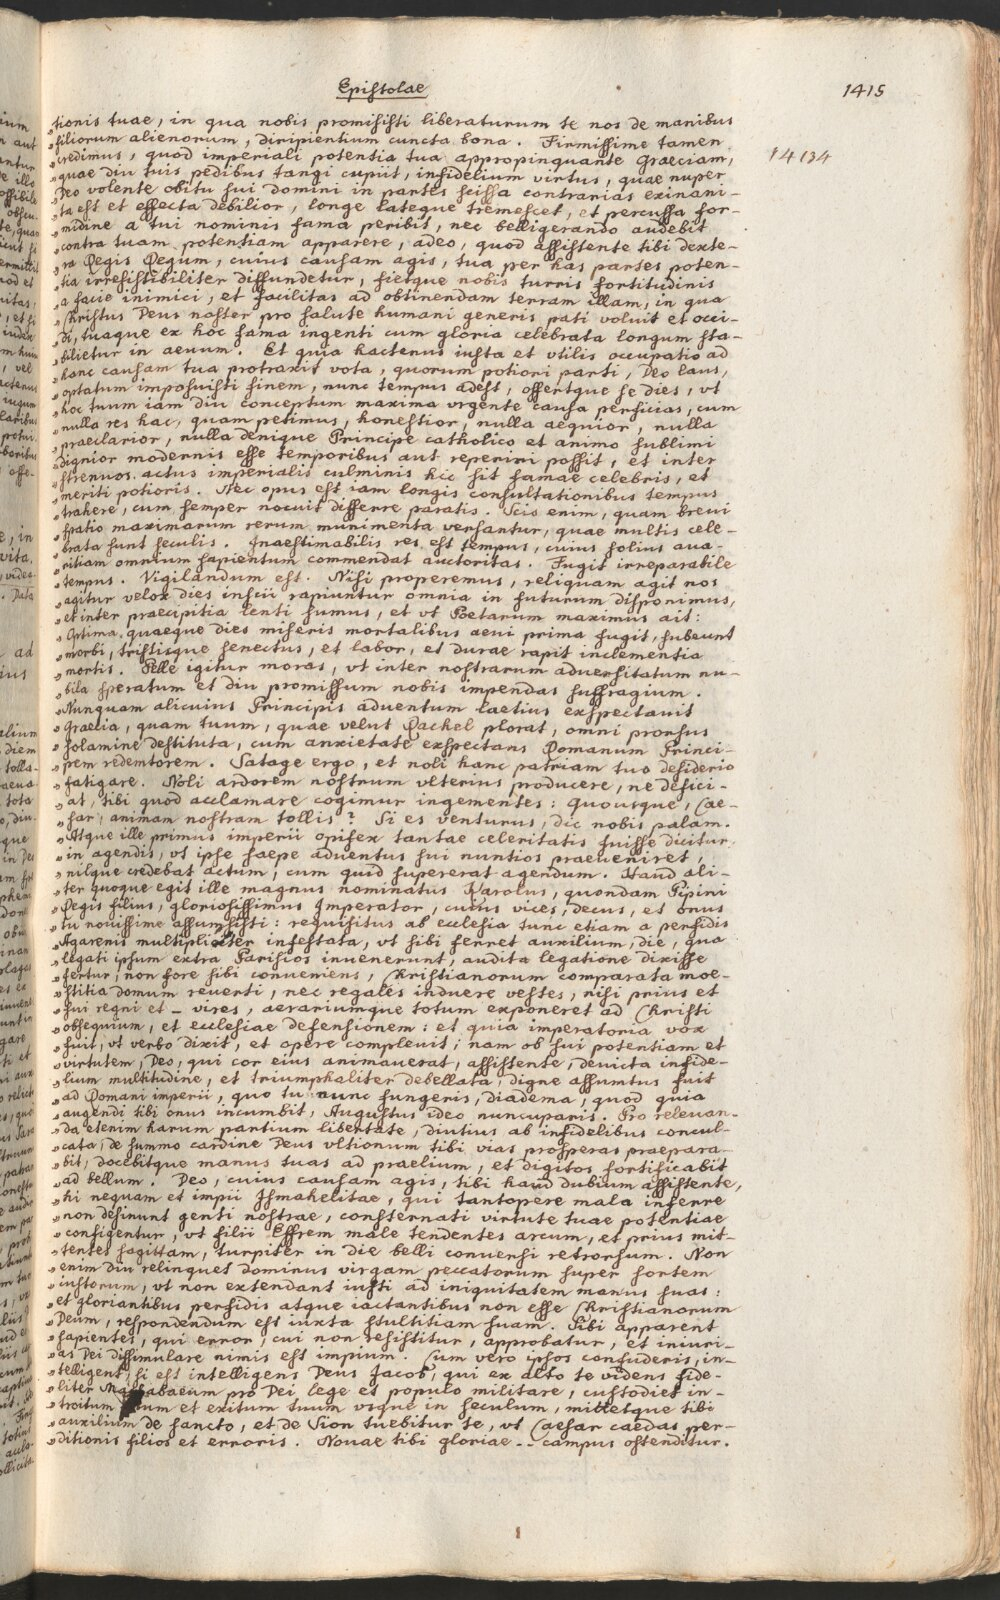 Epistolae
1415
„tionis tuae, in qua nobis promisisti liberaturum te nos de manibus
„filiorum alienorum, diripientium cuncta bona. Firmissime tamen
14134
„credimus, quod imperiali potentia tua appropinquante Graeciam,
„quae diu tuis pedibus tangi cupiit, infidelium virtus, quae nuper
„Deo volente obitu sui domini in partes scissa contrarias exinani-
„ta est et effecta debilior, longe lateque tremescet, et percussa for-
„midine a tui nominis fama peribit, nec belligerando audebit
„contra tuam potentiam apparere, adeo, quod assistente tibi dexte-
„ra Regis Regum, cuius causam agis, tua per has partes poten-
„tia irresistibiliter diffundetur, fietque nobis turris fortitudinis
„a facie inimici, et facilitas ad obtinendam terram illam, in qua
„Christus Deus noster pro salute humani generis pati voluit et occi-
„di, tuaque ex hoc fama ingenti cum gloria celebrata longum sta-
„bilietur in aevum. Et quia hactenus iusta et vtilis occupatio ad
„hanc causam tua protraxit vota, quorum potiori parti, Deo laus,
„optatum imposuisti finem, nunc tempus adest, offertque se dies, vt
„hoc tuum iam diu conceptum maxima vrgente causa perficias, cum
„nulla res hac, quam petimus, honestior, nulla aequior, nulla
„praeclarior, nulla denique Principe catholico et animo sublimi
„dignior modernis esse temporibus aut reperiri possit, et inter
„strenuos actus imperialis culminis hic sit famae celebris, et
„meriti potioris. Nec opus est iam longis consultationibus tempus
„trahere, cum semper nocuit differre paratis. Scis enim, quam breui
„spatio maximarum rerum munimenta versantur, quae multis cele-
„brata sunt seculis. Inaestimabilis res est tempus, cuius solius aua-
„ritiam omnium sapientum commendat auctoritas. Fugit irreparabile
„tempus. Vigilandum est. Nisi properemus, reliquam agit nos
„agitur velox dies inscii rapiuntur omnia in futurum disponimus,
„et inter praecipitia lenti sumus, et vt Poetarum maximus ait:
„Optima quaeque dies miseris mortalibus aeui prima fugit, subeunt
„morbi, tristisque senectus, et labor, et durae rapit inclementia
„mortis. Pelle igitur moras, vt inter nostrarum aduersitatum nu-
„bila speratum et diu promissum nobis impendas suffragium.
„Nunquam alicuius Principis aduentum laetius exspectauit
„Graecia, quam tuum, quae velut Rachel plorat, omni prorsus
„solamine destituta, cum anxietate exspectans Romanum Princi-
„pem redemtorem. Satage ergo, et noli hanc patriam tuo desiderio
„fatigare. Noli ardorem nostrum vlterius producere, ne defici-
„at, tibi quod acclamare cogimur ingementes: Quousque, Cae-
„sar, animam nostram tollis? Si es venturus, dic nobis palam.
„Atque ille primus imperii opifex tantae celeritatis fuisse dicitur,
„in agendis, vt ipse saepe aduentus sui nuntios praeueniret,
„nilque credebat actum, cum quid supererat agendum. Haud ali-
„ter quoque egit ille magnus nominatus Karolus, quondam Pipini
„Regis filius, gloriosissimus Imperator, cuius vices, decus, et onus
„tu nouissime assumsisti: requisitus ab ecclesia tunc etiam a perfidis
„Agarenis multipliciter infestata, vt sibi ferret auxilium, die, qua
„legati ipsum extra Parisios invenerunt, audita legatione dixisse
„fertur, non fore sibi conueniens, Christianorum comparata moe-
„stitia domum reuerti, nec regales induere vestes, nisi prius et
„sui regni et - vires, aerariumque totum exponeret ad Christi
„obsequium, et ecclesiae defensionem: et quia imperatoria vox
„fuit, vt verbo dixit, et opere compleuit; nam ob sui potentiam et
„virtutem, Deo, qui cor eius animauerat, assistente, deuicta infide-
„lium multitudine, et triumphaliter debellata, digne assumtus fuit
„ad Romani imperii, quo tu nunc fungeris, diadema, quod quia
„augendi tibi onus incumbit, Augustus ideo nuncuparis. Pro releuan-
„da etenim harum partium libertate, diutius ab infidelibus concul-
„cata, de summo cardine Deus vltionum tibi vias prosperas praepara-
„bit, docebitque manus tuas ad praelium, et digitos fortificabit
„ad bellum. Deo, cuius causam agis, tibi haud dubium assistente,
„hi nequam et impii Ismahelitae, qui tantopere mala inferre
„non desinunt genti nostrae, consternati virtute tuae potentiae
„configentur, vt filii Effrem male tendentes arcum, et prius mit-
„tentes sagittam, turpiter in die belli conuersi retrorsum. Non
„enim diu relinquet dominus virgam peccatorum super sortem
„iustorum, vt non extendant iusti ad iniquitatem manus suas:
„et gloriantibus perfidis atque iactantibus non esse Christianorum
„Deum, respondendum est iuxta stultitiam suam. Sibi apparent
„sapientes, qui error, cui non resistitur, approbatur, et iniuri-
„as Dei dissimulare nimis est impium. Cum vero ipsos confuderis, in-
„telligent, si est intelligens Deus Jacob, qui ex alto te videns fide-
„liter Machabaeum pro Dei lege et populo militare, custodiet in-
„troitum tuum et exitum tuum vsque in seculum, mittetque tibi
„auxilium de sancto, et de Sion tuebitur te, vt Caesar caedas per-
„ditionis filios et erroris. Nouae tibi gloriae - campus ostenditur.